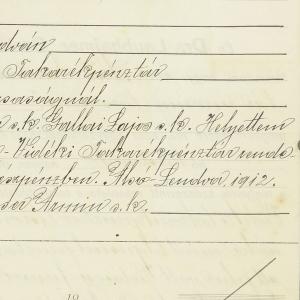 dván
Takarékpénztár
saságnál.
s.k. Gallai Lajos s.k. Helyettem
- Vidéki Takarékpénztár rends
észpénzben. Alsó Lendva, 1912.
der Ármin s.k.
19